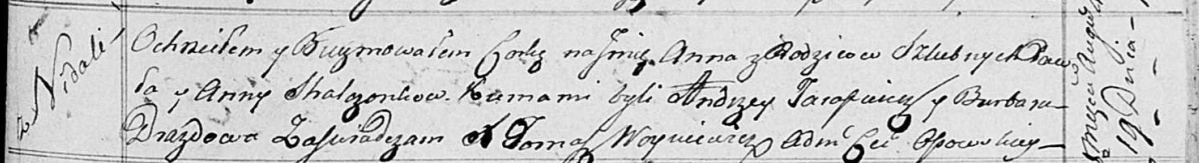 z Nidali,
Ochrzciłem y Bierzmowałem Corkę na Jmię Anna z Rodzicow Szlubnych Paw
ła y Anny Skakzonkow. Kumami byli Andrzey Tarasiewicz y Barbara
Drazdowa Zaswiadczam X Tomasz Woyniewicz Adm Cer Osowskiey
Miesiąca August
19 Dnia